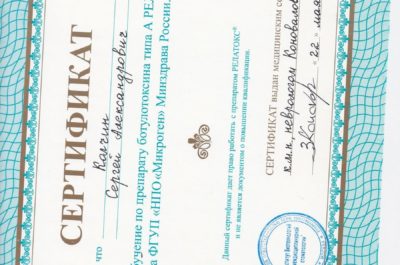 СЕРТИФИКАТ
что Колчин
Сергей Александрович
обучение по препарату ботулотоксина типа А
ФГУП «НПО «Микроген» Минздрава России
Данный сертификат дает право работать с препаратом РЕЛАТОКС®
и не является документом о повышении квалификации.
СЕРТИФИКАТ выдан медицинским
к.м.н, неврологом
« 22 » мая